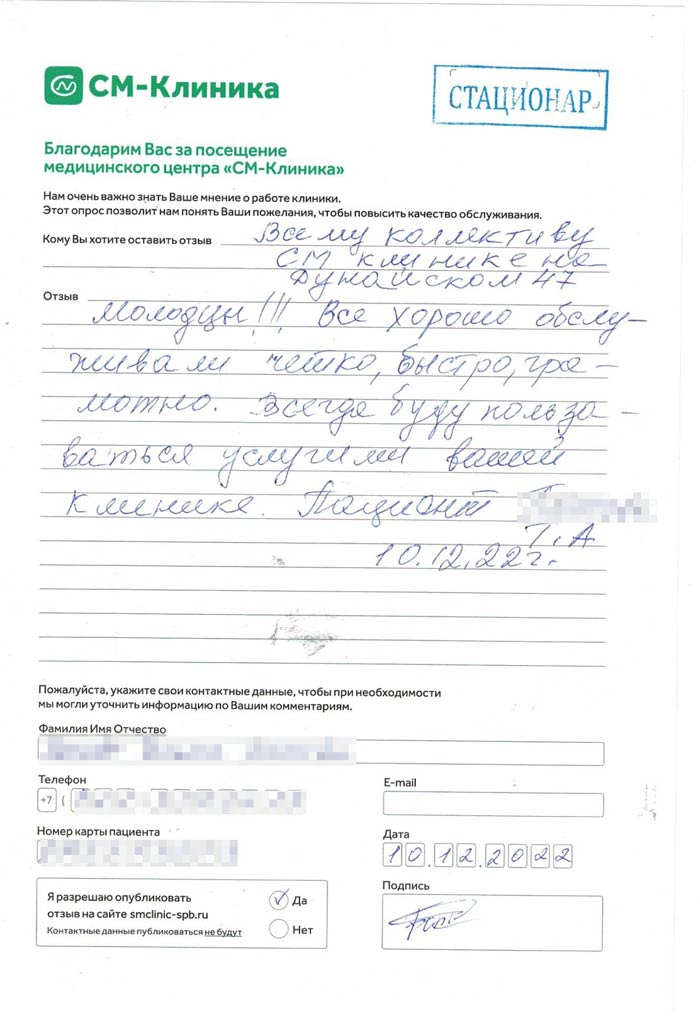 СМ-Клиника
СТАЦИОНАР
Благодарим Вас за посещение
медицинского центра «СМ-Клиника»
Нам очень важно знать Ваше мнение о работе клиники.
Этот опрос позволит нам понять Ваши пожелания, чтобы повысить качество обслуживания.
Кому Вы хотите оставить отзыв Всему коллективу
СМ клинике на
Дунайском 47
Отзыв
Молодцы!!! Все хорошо обслу-
живали четко, быстро, гра-
мотно. Всегда буду пользо-
ваться услугими вашей
клинике. Пациент
Т. А
10.12.22г.
Пожалуйста, укажите свои контактные данные, чтобы при необходимости
мы могли уточнить информацию по Вашим комментариям.
Фамилия Имя Отчество
Телефон
E-mail
+7 (
Номер карты пациента
Дата
10.12.2022
Подпись
Я разрешаю опубликовать
отзыв на сайте smclinic-spb.ru
Контактные данные публиковаться не будут
Да
Нет